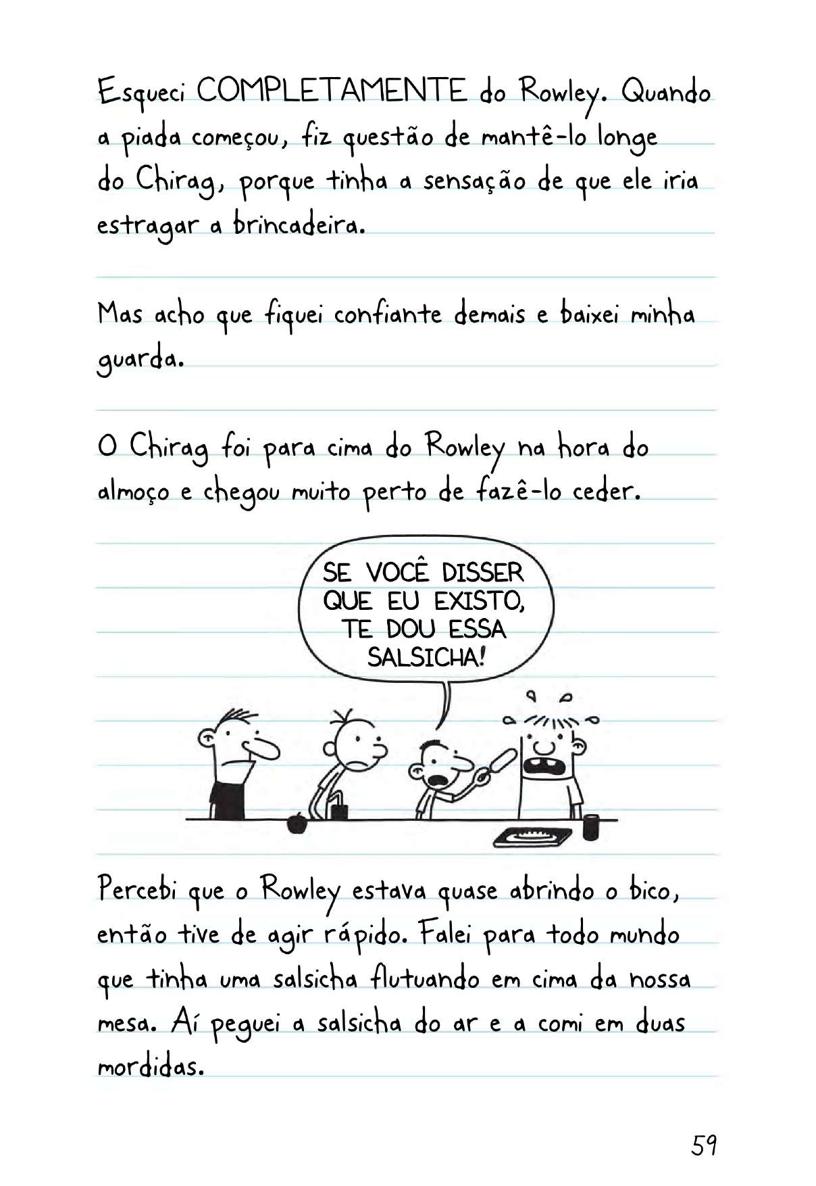 Esqueci COMPLETAMENTE do Rowley. Quando
a piada começou, fiz questão de mantê-lo longe
do Chirag, porque tinha a sensação de que ele iria
estragar a brincadeira.
Mas acho que fiquei confiante demais e baixei minha
guarda.
O Chirag foi para cima do Rowley na hora do
almoço e chegou muito perto de fazê-lo ceder.
SE VOCÊ DISSER
QUE EU EXISTO,
TE DOU ESSA
SALSICHA!
Percebi que o Rowley estava quase abrindo o bico,
então tive de agir rápido. Falei para todo mundo
que tinha uma salsicha flutuando em cima da nossa
mesa. Aí peguei a salsicha do ar e a comi em duas
mordidas.
59